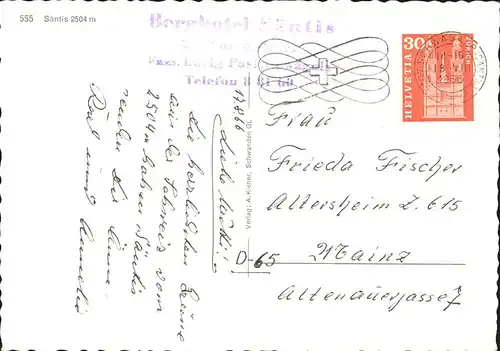 555 Säntis 2504 m
Berghotel Säntis
Telefon 8 81 60
HELVETIA
30
17.8.66
Liebe Mutti!
Die herzlichsten Grüsse
aus der Schweiz vom
2504 m hohen Säntis
senden Dir Deine
Verlag: A. Kiener, Schwanden GL
D-65
Frau
Frieda Fischer
Altersheim Z. 615
Mainz
Altenauergasse 7